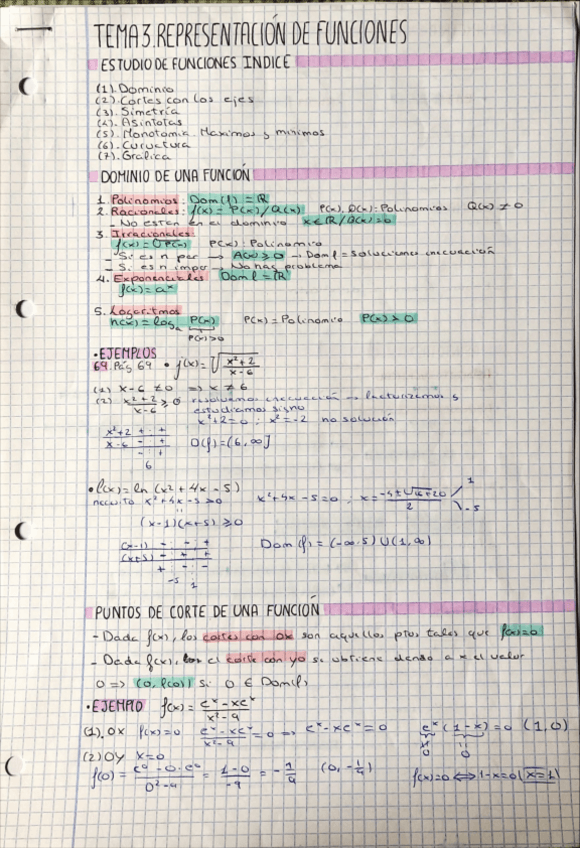 TEMA 3. REPRESENTACIÓN DE FUNCIONES
ESTUDIO DE FUNCIONES INDICE
(1). Dominio
(2). Cortes con los ejes
(3). Simetría
(4). Asíntotas
(5). Monotomia. Maximos y minimos
(6). Curvatura
(7). Gráfica
DOMINIO DE UNA FUNCIÓN
1. Polinomios: Dom(f) = ℝ
2. Racionales: f(x) = P(x)/Q(x) P(x), Q(x): Polinomios Q(x) ≠ 0
- No están en el dominio x∈ℝ/Q(x)=0
3. Irracionales:
P(x): Polinomio
- Si es n par → A(x) ≥ 0 → Dom f = Soluciones inecuación
- Si es n impar → No hay problema
4. Exponenciales Dom f = ℝ
f(x) = aˣ
5. Logaritmos
h(x) = logₐ P(x) P(x) = Polinomio P(x) > 0
P(x) > 0
· EJEMPLOS
69. Pág 69 • f(x) = √((x²+2)/(x-6))
(1) x-6 ≠ 0 ⇒ x ≠ 6
(2) (x²+2)/(x-6) ≥ 0 resolvemos inecuación → factorizamos y
estudiamos signo
x²+2=0 ; x²=-2 no solución
x²+2 + +
x-6 - + D(f) = (6, ∞]
- +
6
• f(x) = ln (x² + 4x - 5)
necesito x²+4x-5 > 0 x²+4x-5=0 ; x = (-4±√(16+20))/2 1
-5
(x-1)(x+5) ≥ 0
(x-1) - - +
(x+5) - + + Dom(f) = (-∞-5) ∪ (1, ∞)
+ - -
-5 1
PUNTOS DE CORTE DE UNA FUNCIÓN
- Dada f(x), los cortes con ox son aquellos ptos tales que f(x)=0
- Dada f(x), el corte con yo se obtiene dando a x el valor
0 => (0, f(0)) si 0 ∈ Dom(f)
· EJEMPLO f(x) = (eˣ-xeˣ)/(x²-9)
(1). OX f(x)=0 (eˣ-xeˣ)/(x²-9) = 0 => eˣ-xeˣ=0 eˣ(1-x)=0 (1,0)
(2) OY x=0
f(0) = (e⁰-0·e⁰)/(0²-9) = (1-0)/-9 = -1/9 (0, -1/9) f(x)=0 ⟺ 1-x=0 (x=1)